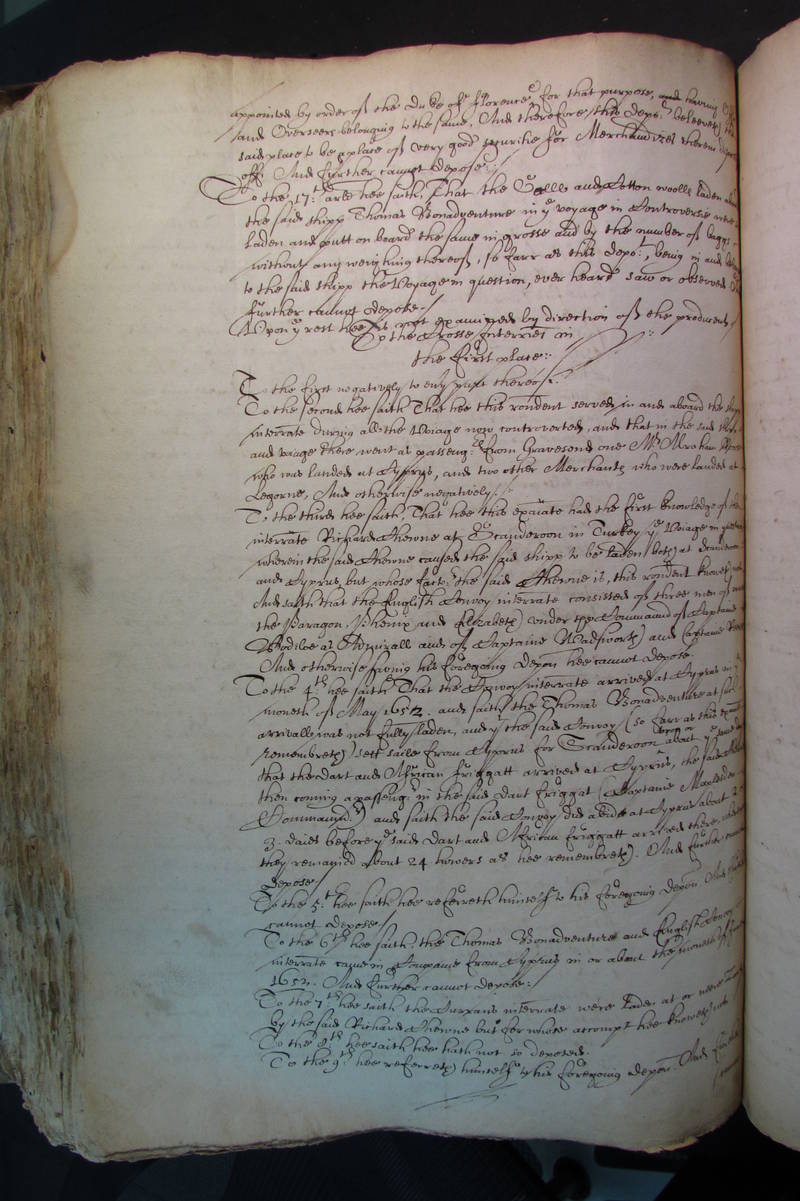 appointed by order of the Duke of Florence for that purpose, and having
and Overseers belonging to the same, And therefore this depot beleeveth the
said place to be a place of very good securitie for Merchandizes therein
off, And further cannot depose:
To the 17:th arle hee saith, That the Galls and Cotton woolls laden
the said shipp Thomas Bonadventure in ye voyage in Controversie were
laden and putt on board the same in grosse and by the number of baggs
without any weighing thereof, so farr as this depot, being in and
to the said shipp the Voyage in question, ever heard saw or observed
further cannot depose./
Upon ye rest hee is not examined by direction of the producents
To the Crosse Interries in
the first place:
To the first negatively to every parte thereof:
To the second hee saith That hee this rondent served in and aboard the shipp
interrate during all the Voiage now controverted, and that in the said shipp
and voiage there went as passengr from Gravesend one Mr Abraham
who was landed at Cyprus, and two other Merchants who were landed at
Legorne, And otherwise negatively:
To the third hee saith, That hee this exaiate had the first knowledge of the
interrate Richard Chewne at Scanderoon in Turkey ye Voiage in question
wherein the said Chewne caused the said shipp to be laden both at Scanderoon
and Cyprus, but whose factor the said Chewne is, this rondent knoweth not
And saith that the English Convoy interrate consisted of three men of warr
the Paragon, Phenix and Elizabeth under the Command of Captaine
Bodiloe as Admirall and of Captaine Wadsworth and Captaine
And otherwise saving his foregoing depon hee cannot depose
To the 4th hee saith That the Convoy interrate arrived at Cyprus in ye
moneth of May 1652. and saith the Thomas Bonadventure at such
arrivall was not fully laden, and yt the said Convoy (so farr as this exaiate
remembreth) sett saile from Cyprus for Scanderoon upon or about ye same day
that the Dart and African friggatt arrived at Cyprus, the said
then coming a passengr in the said Dart friggat (Captaine
Commandr) and saith the said Convoy did abide at Cyprus about 2 or
3. daies before ye said Dart and African friggatt arrived there, where
they remained about 24 howers as hee remembreth. And further cannot
depose
To the 5:th hee saith hee referreth himselfe to his foregoing depon And further
cannot depose
To the 6th hee saith, the Thomas Bonadventure and English Convoy
interrate came in Companie from Cyprus in or about the moneth of
1652. And further cannot depose:
To the 7:th hee saith the Currans interrate were laden at or neere
by the said Richard Chewne but for whose accompt hee knoweth not
To the 8th hee saith hee hath not so deposed.
To the 9:th hee referreth himselfe to his foregoing depon And